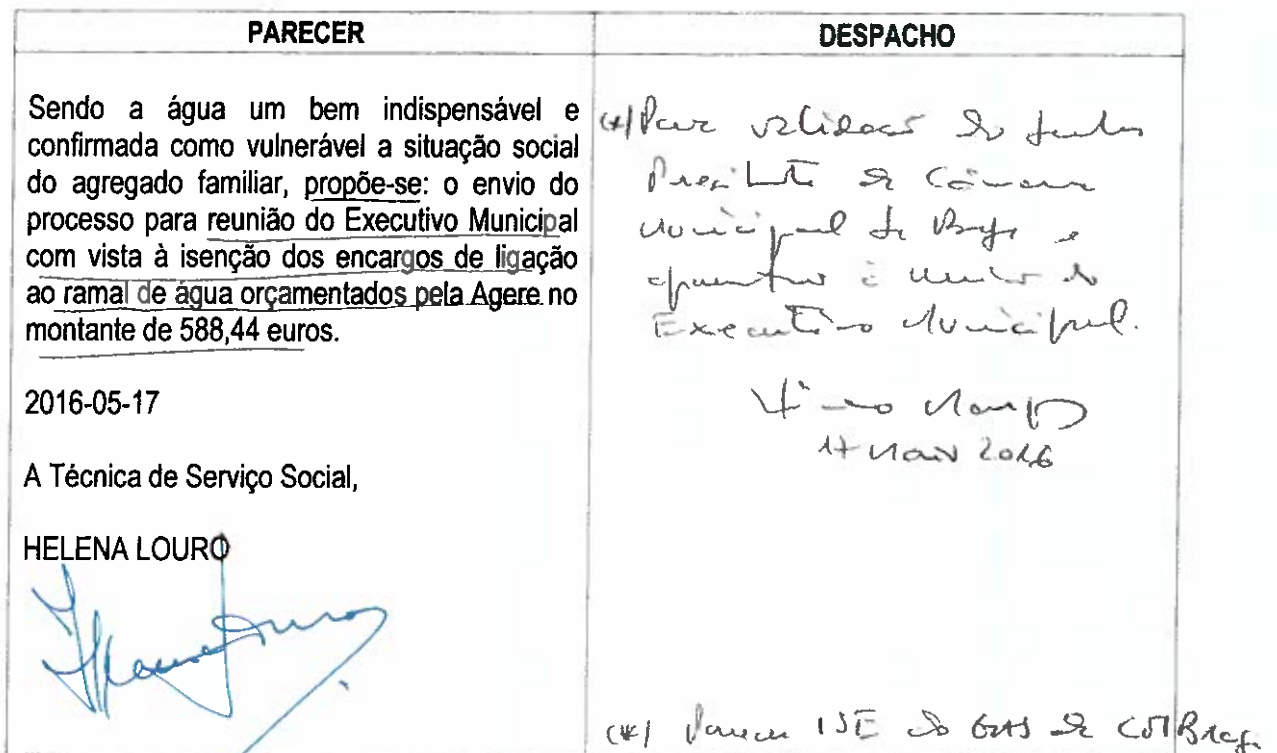 PARECER
Sendo a água um bem indispensável e
confirmada como vulnerável a situação social
do agregado familiar, propõe-se: o envio do
processo para reunião do Executivo Municipal
com vista à isenção dos encargos de ligação
ao ramal de água orçamentados pela Agere no
montante de 588,44 euros.
2016-05-17
A Técnica de Serviço Social,
HELENA LOURO
DESPACHO
(*) Para do Senhor
Presidente da Câmara
Municipal de Braga e
à do
Executivo Municipal.
17 Maio 2016
(*) do GAS da CMBraga